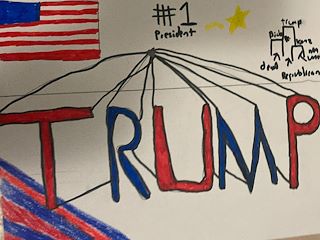 #1
President
trump
dead
Republican
TRUMP